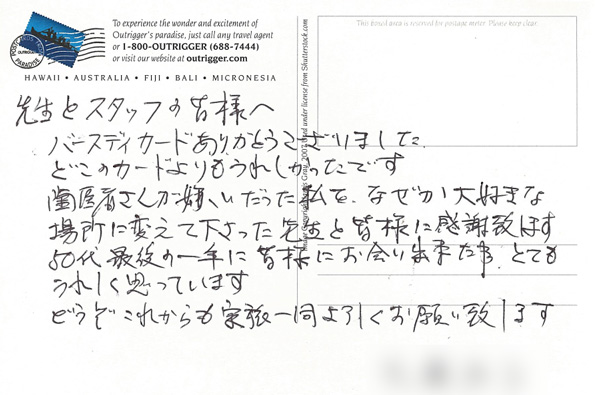 To experience the wonder and excitement of
Outrigger's paradise, just call any travel agent
or 1-800-OUTRIGGER (688-7444)
or visit our website at outrigger.com
HAWAII • AUSTRALIA • FIJI • BALI • MICRONESIA
This boxed area is reserved for postage meter. Please keep clear.
先生とスタッフの皆様へ
バースディカードありがとうございました
どこのカードよりもうれしかったです
歯医者さんが嫌いだった私を、なぜか大好きな
場所に変えて下さった先生と皆様に感謝致します
50代最後の年に皆様にお会い出来た事、とても
うれしく思っています
どうぞこれからも家族一同よろしくお願い致します